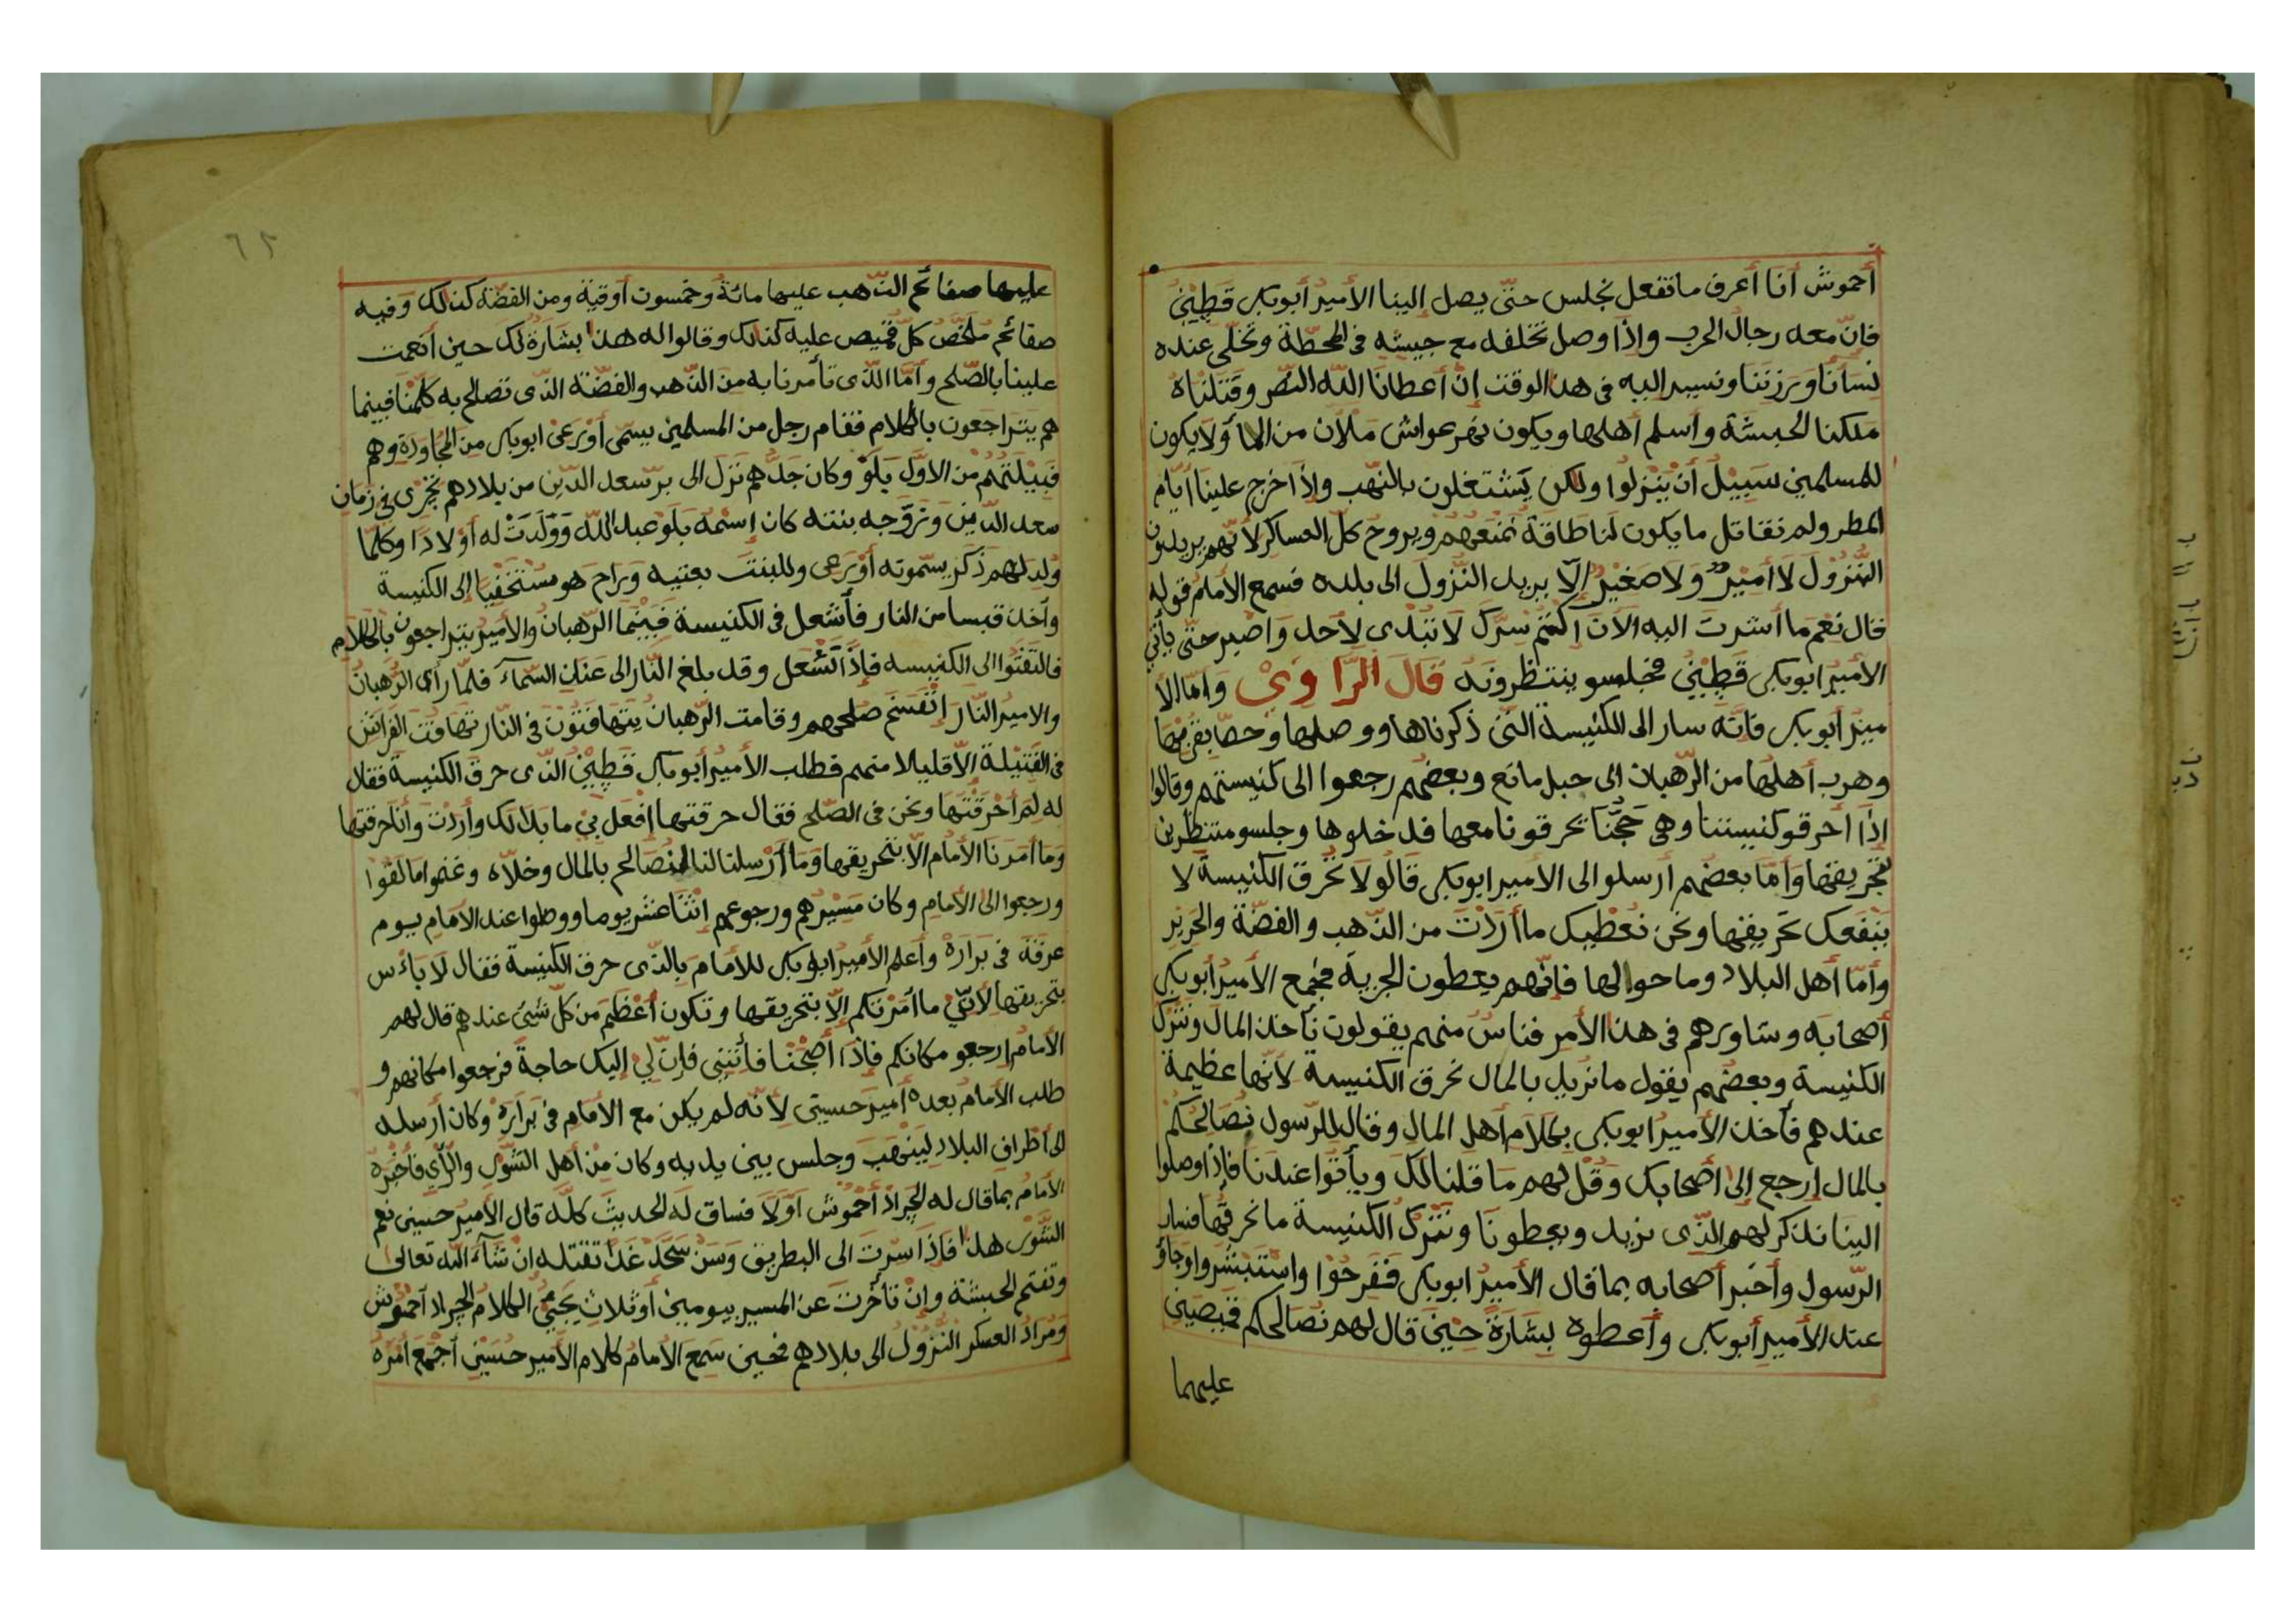 أحموش أنا أعرف ما نفعل نجلس حتّى يصل إلينا الأمير أبوبكر قَطِيْنُ
فانّ معه رجالُ الحرب وإذا وصل نخلفه مع جيشه فى المحطّة ونخلّى عنده
نسأنا وبرزتنا ونسير اليه فى هذا الوقت إنْ أعطانا اللّه النّصر وقتلناه
ملكنا الحبشة وأسلم أهلها ويكون نهر عواش ملأن من الما أولا يكون
للمسلمين سبيلُ أنْ ينزلوا ولكن يشتغلون بالنّهب وإذا خرج علينا أيّام
المطر ولم نقاتل ما يكون لنا طاقة نمنعهم ويروح كلّ العساكر لأنّهم يريدون
النّزول لا أميرٌ ولا صغيرٌ إلّا يريد النّزول الى بلده فسمع الأمام قوله
قال نعم ما أشرت اليه الآن اكتم سرّك لا تبدى لأحد واصبر حتّى يأتى
الأمير ابوبكر قَطِيْنُ فجلسو ينتظرونه قال الرّاوى وامّا الأ
مير أبوبكر فانّه سار الى الكنيسة التى ذكرناها ووصلها
وهرب أهلها من الرّهبان الى جبل مانع وبعضهم رجعوا الى كنيستهم وقالوا
إذا أحرقو كنيستنا وهى حجّنا تحرقونا معها فدخلوها وجلسو منتظرين
تحريقها وأمّا بعضهم أرسلوا الى الأمير ابوبكر قالو لا تحرق الكنيسة لا
ينفعك تحريقها ونحن نعطيك ما أردت من الذّهب والفضّة والحرير
وأمّا أهل البلاد وما حوالها فإنّهم يعطون الجزية فجمع الأمير أبوبكر
أصحابه وشاورهم فى هذا الأمر فناسٌ منهم يقولون نأخذ المال ونترك
الكنيسة وبعضهم يقول ما نريد بالمال نحرق الكنيسة لأنّها عظيمة
عندهم فأخذ الأمير ابوبكر بكلام أهل المال وقال للرّسول نصالحكم
بالمال إرجع إلى أصحابك وقل لهم ما قلنا لك ويأتوا عندنا فإذا وصلوا
الينا نذكر لهم الذّى نريد ويعطونا ونترك الكنيسة ما نحرقها فسار
الرّسول وأخبر أصحابه بما قال الأمير ابوبكر ففرحوا واستبشروا وجاؤ
عند الأمير أبوبكر وأعطوه بشارة حين قال لهم نصالحكم قميصين
عليهما
٦٢
عليها صفائح الذّهب عليها مائة وخمسون أوقية ومن الفضّة كذلك وفيه
صفائح ملخّص كلّ قميص عليه كذلك وقالوا له هذا بشارة لك حين أنعمت
علينا بالصّلح وأمّا الذّى تأمرنا به من الذّهب والفضّة الذّى تصالح به كلّمنا فبينما
هم يتراجعون بالكلام فقام رجل من المسلمين يسمّى أورعى ابوبكر من المجاورة وهم
قبيلتهم من الاوّل يلو وكان جدّهم نزل الى برّ سعد الدّين من بلادهم فى زمان
سعد الدّين وتزوّجه بنته كان إسمه يلو عبد اللّه وولدت له أولادا وكلّما
ولد لهم ذكر يسمّوته أورعى وللبنت بعتيه وراح هو مستخفيا إلى الكنيسة
وأخذ قبسا من النار فأشعل فى الكنيسة فبينما الرّهبان والأمير يتراجعون بالكلام
فالتفتوا الى الكنيسه فإذا تشعل وقد بلغ النّار الى عنان السّماء فلمّا رأى الرّهبان
والامير النّار إنفسخ صلحهم وقامت الرّهبان يتهافتون فى النّار تهافت الفراش
فى الفتيلة الّا قليلا منهم فطلب الأمير أبوبكر قَطِيْنُ الذّى حرق الكنيسة فقال
له لم أحرقتها ونحن فى الصّلح فقال حرقتها إفعل بى ما بدا لك وأردت وأنا حرقتها
وما أمرنا الأمام الّا بتحريقها وما أرسلنا لنا لنصالح بالمال وخلّاه وغنموا ما لقوا
ورجعوا الى الأمام وكان مسيرهم ورجوعهم إثنا عشر يوما ووصلوا عند الأمام يوم
عرفة فى براره وأعلم الأمير ابوبكر للأمام بالذّى حرق الكنيسة فقال لا باءس
بتحريقها لأنّى ما أمرتكم إلّا بتحريقها وتكون أعظم من كلّ شيئ عندهم قال لهم
الأمام إرجعو مكانكم فإذا أصبحنا فأتنى فإنّ لى إليك حاجة فرجعوا مكانهم و
طلب الأمام بعده أمير حسينى لأنّه لم يكن مع الأمام فى براره وكان أرسله
الى أطراف البلاد لينهب وجلس بين يديه وكان من أهل الشّور والرّأى فأخبره
الأمام بما قال له الجراد أحموش أوّلا فساق له الحديث كلّه قال الأمير حسينى نعم
الشّور هذا فإذا سرت الى البطريق وسن سجد غدا تقتله ان شاء اللّه تعالى
وتفتح الحبشة وإن تأخّرت عن المسير بيومين أو ثلاث يجيئ الكلام الجراد أحموش
ومراد العسكر النّزول الى بلادهم فحين سمع الأمام كلام الأمير حسينى أجمع أمره